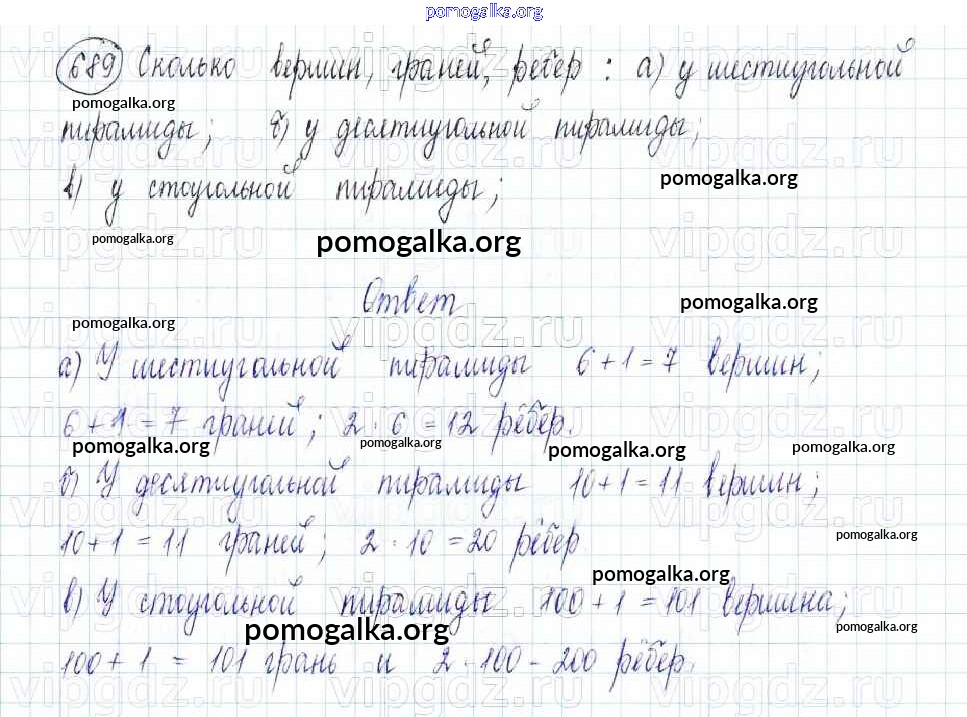 pomogalka.org
689 Сколько вершин, граней, рёбер : а) у шестиугольной
pomogalka.org
пирамиды; б) у десятиугольной пирамиды;
в) у стоугольной пирамиды;
pomogalka.org
pomogalka.org
pomogalka.org
Ответ
pomogalka.org
pomogalka.org
а) У шестиугольной пирамиды 6 + 1 = 7 вершин;
6 + 1 = 7 граней; 2 · 6 = 12 рёбер.
pomogalka.org
pomogalka.org
pomogalka.org
pomogalka.org
б) У десятиугольной пирамиды 10 + 1 = 11 вершин;
10 + 1 = 11 граней; 2 · 10 = 20 рёбер
pomogalka.org
pomogalka.org
в) У стоугольной пирамиды 100 + 1 = 101 вершина;
pomogalka.org
pomogalka.org
100 + 1 = 101 грань и 2 · 100 - 200 рёбер.
vipgdz.ru